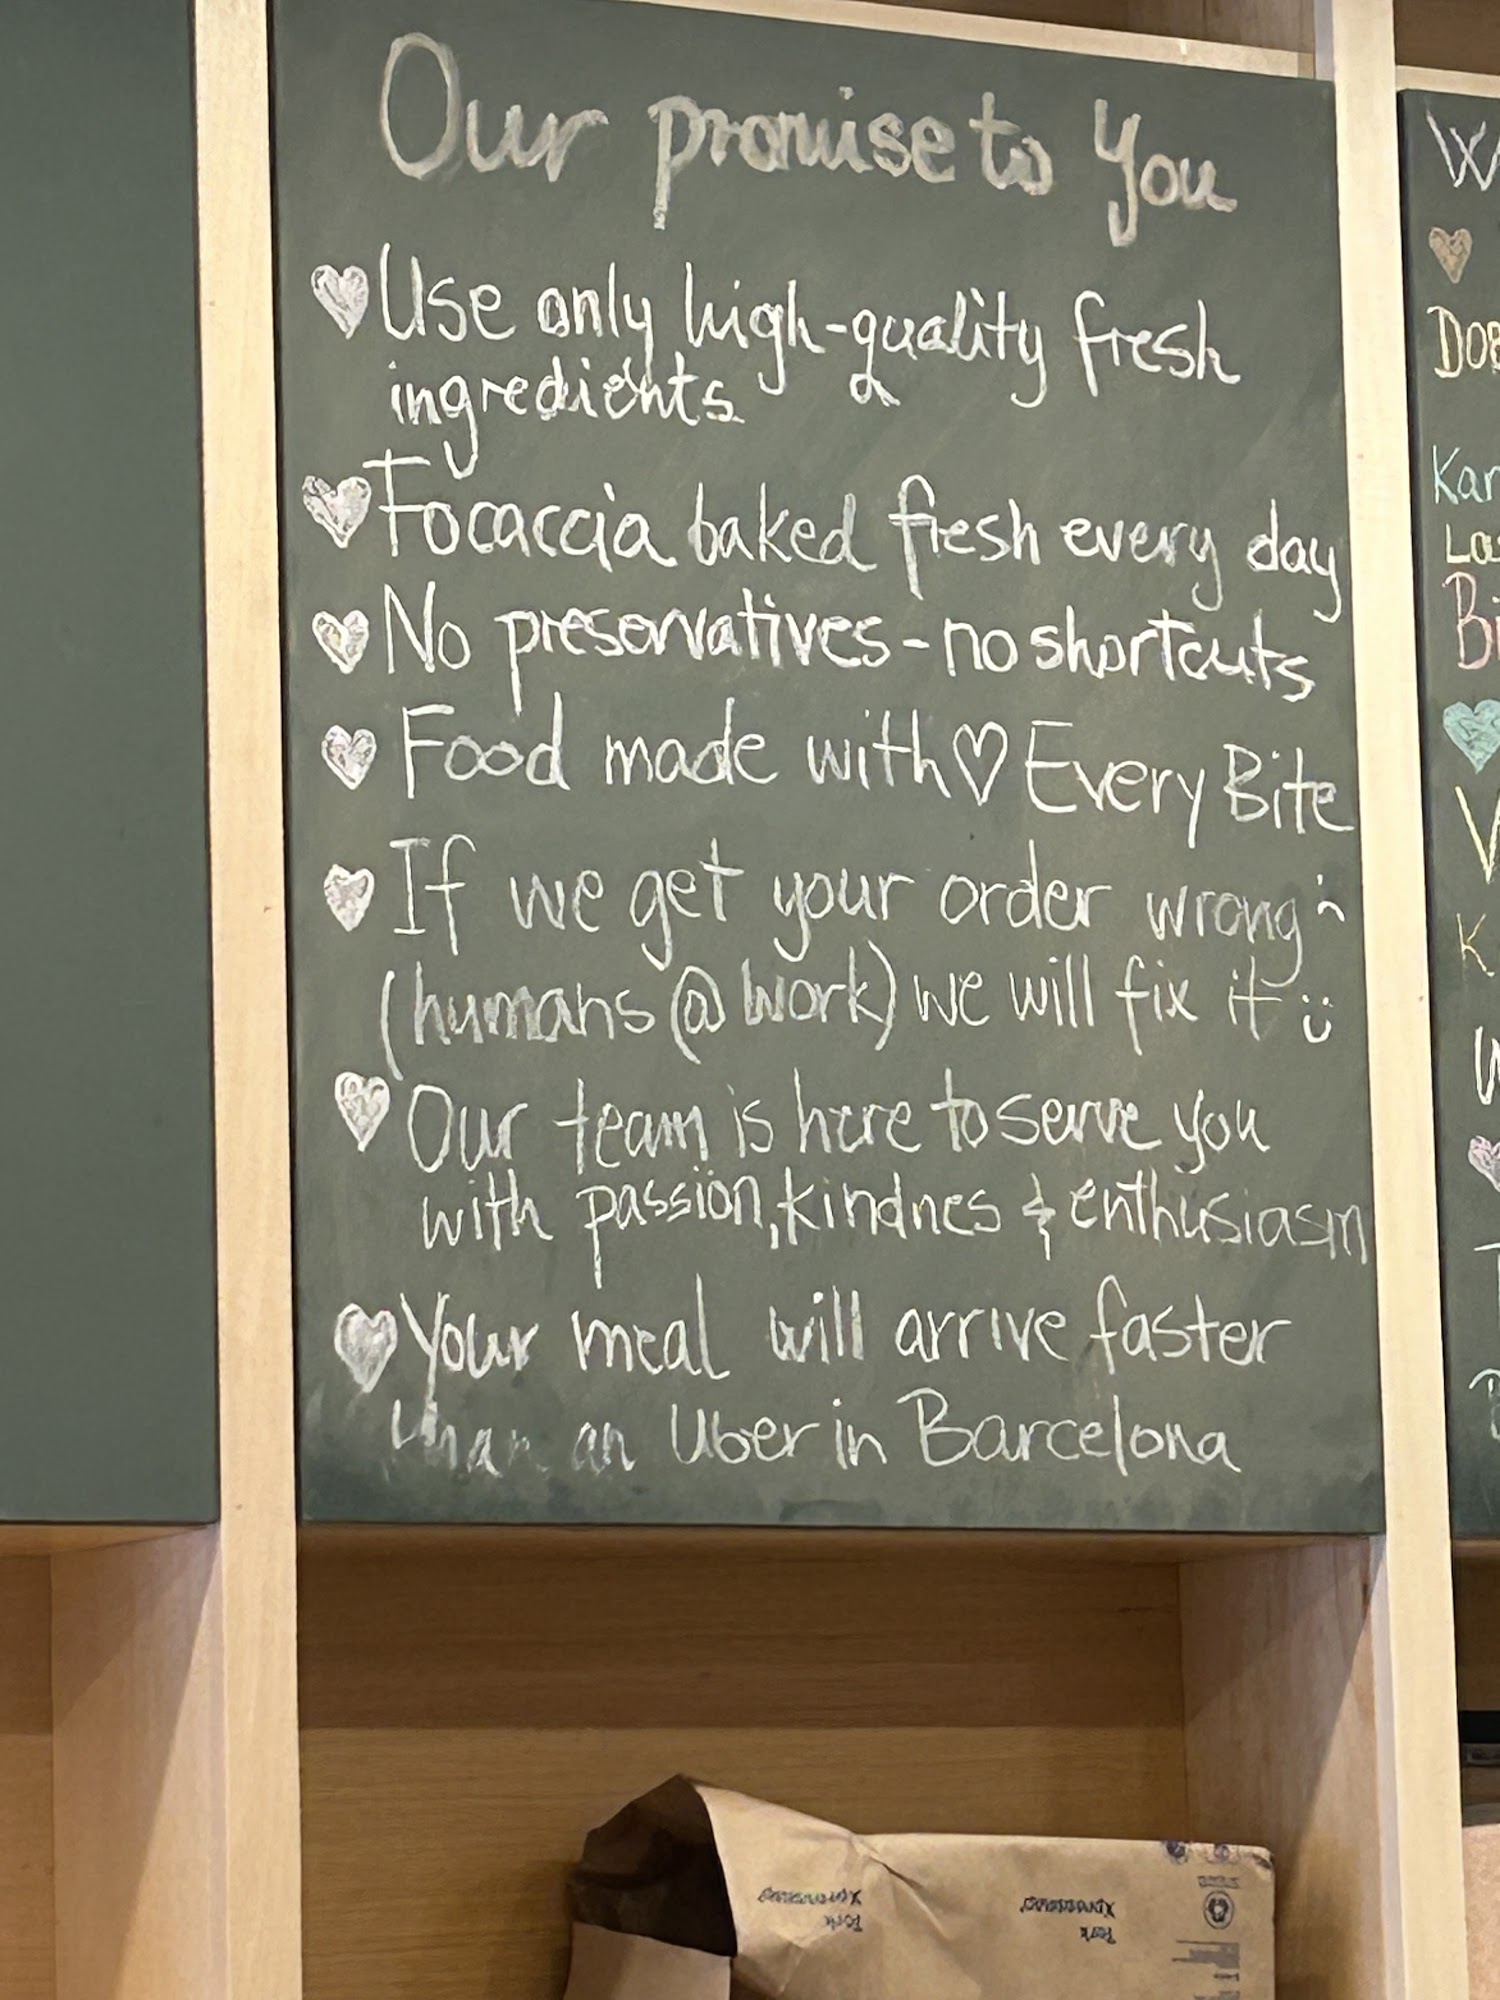 Our promise to you
♥ Use only high-quality fresh
ingredients
♥ Focaccia baked fresh every day
♥ No preservatives - no shortcuts
♥ Food made with ♡ Every Bite
♥ If we get your order wrong :(
(humans @ work) we will fix it :)
♥ Our team is here to serve you
with passion, kindnes & enthusiasm
♥ Your meal will arrive faster
than an Uber in Barcelona